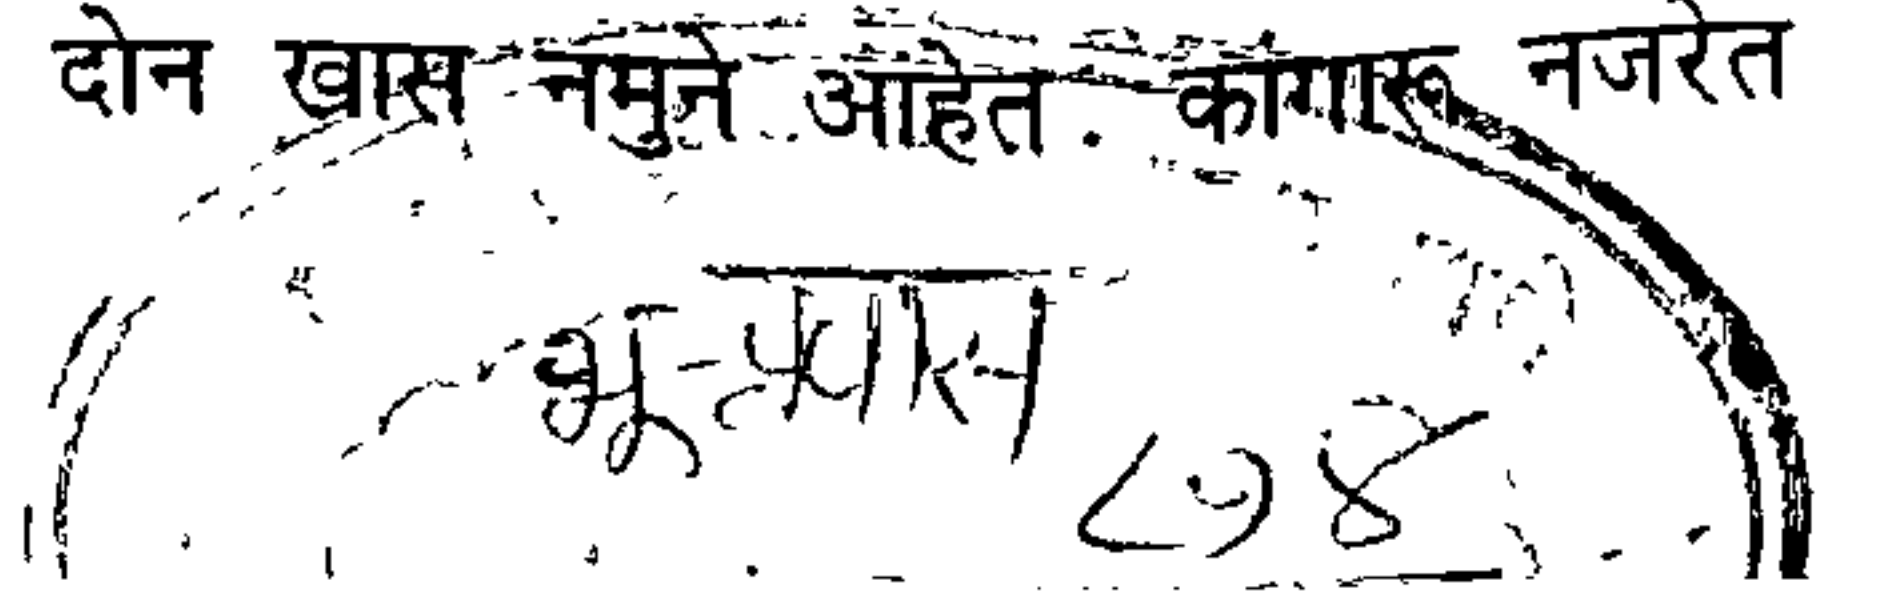 दोन खास नमुने आहेत. कांगारू नजरेत
भू-प्रवास
८७४